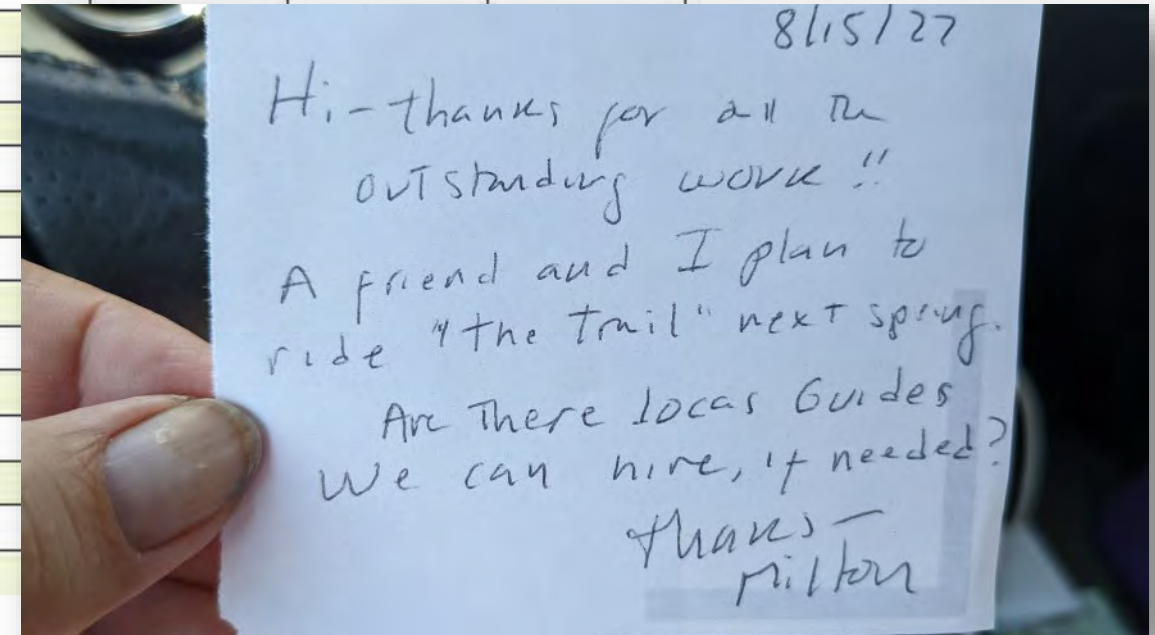 8/15/27
Hi-thanks for all the
outstanding work!!
A friend and I plan to
ride "the trail" next spring.
Are There locas Guides
We can hire, if needed?
thanks-
Milton